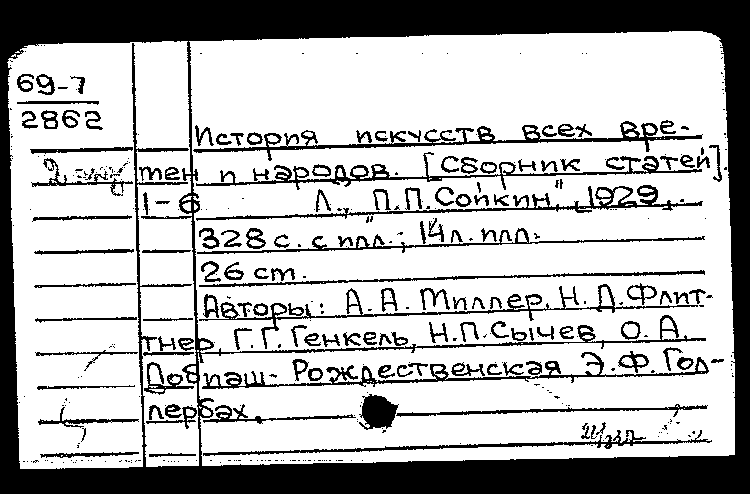 69-7
2862
История искусств всех вре-
мен и народов. [Сборник статей].
1-6 Л., "П.П.Сойкин", [1929].
328 с. с илл.; 14 л. илл.
26 cm.
Авторы: А. А. Миллер, Н. Д. Флит-
тнер, Г. Г. Генкель, Н.П.Сычев, О. А.
Добиаш-Рождественская, Э.Ф. Гол-
лербах.